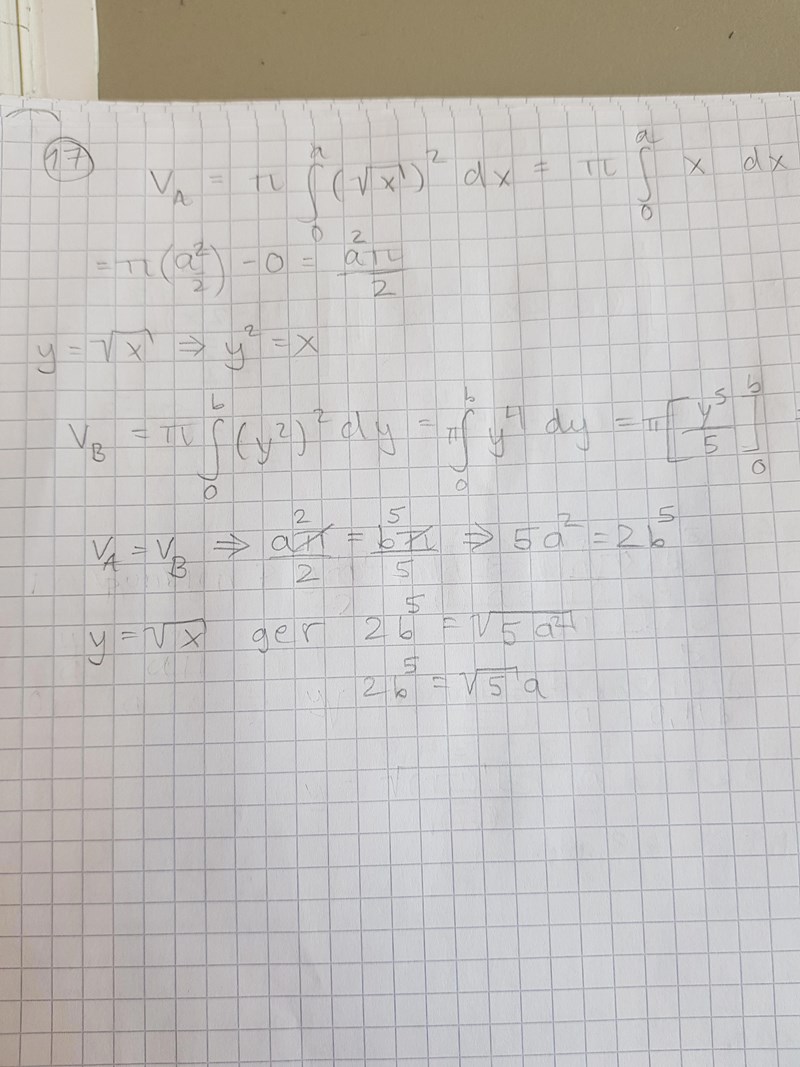 17
V_A = π ∫₀ᵃ (√x)² dx = π ∫₀ᵃ x dx
= π(a²/2) - 0 = a²π/2
y = √x ⇒ y² = x
V_B = π ∫₀ᵇ (y²)² dy = π ∫₀ᵇ y⁴ dy = π [y⁵/5]₀ᵇ
V_A = V_B ⇒ a²π/2 = b⁵π/5 ⇒ 5a² = 2b⁵
y = √x ger 2b⁵ = √5a²
2b⁵ = √5 a